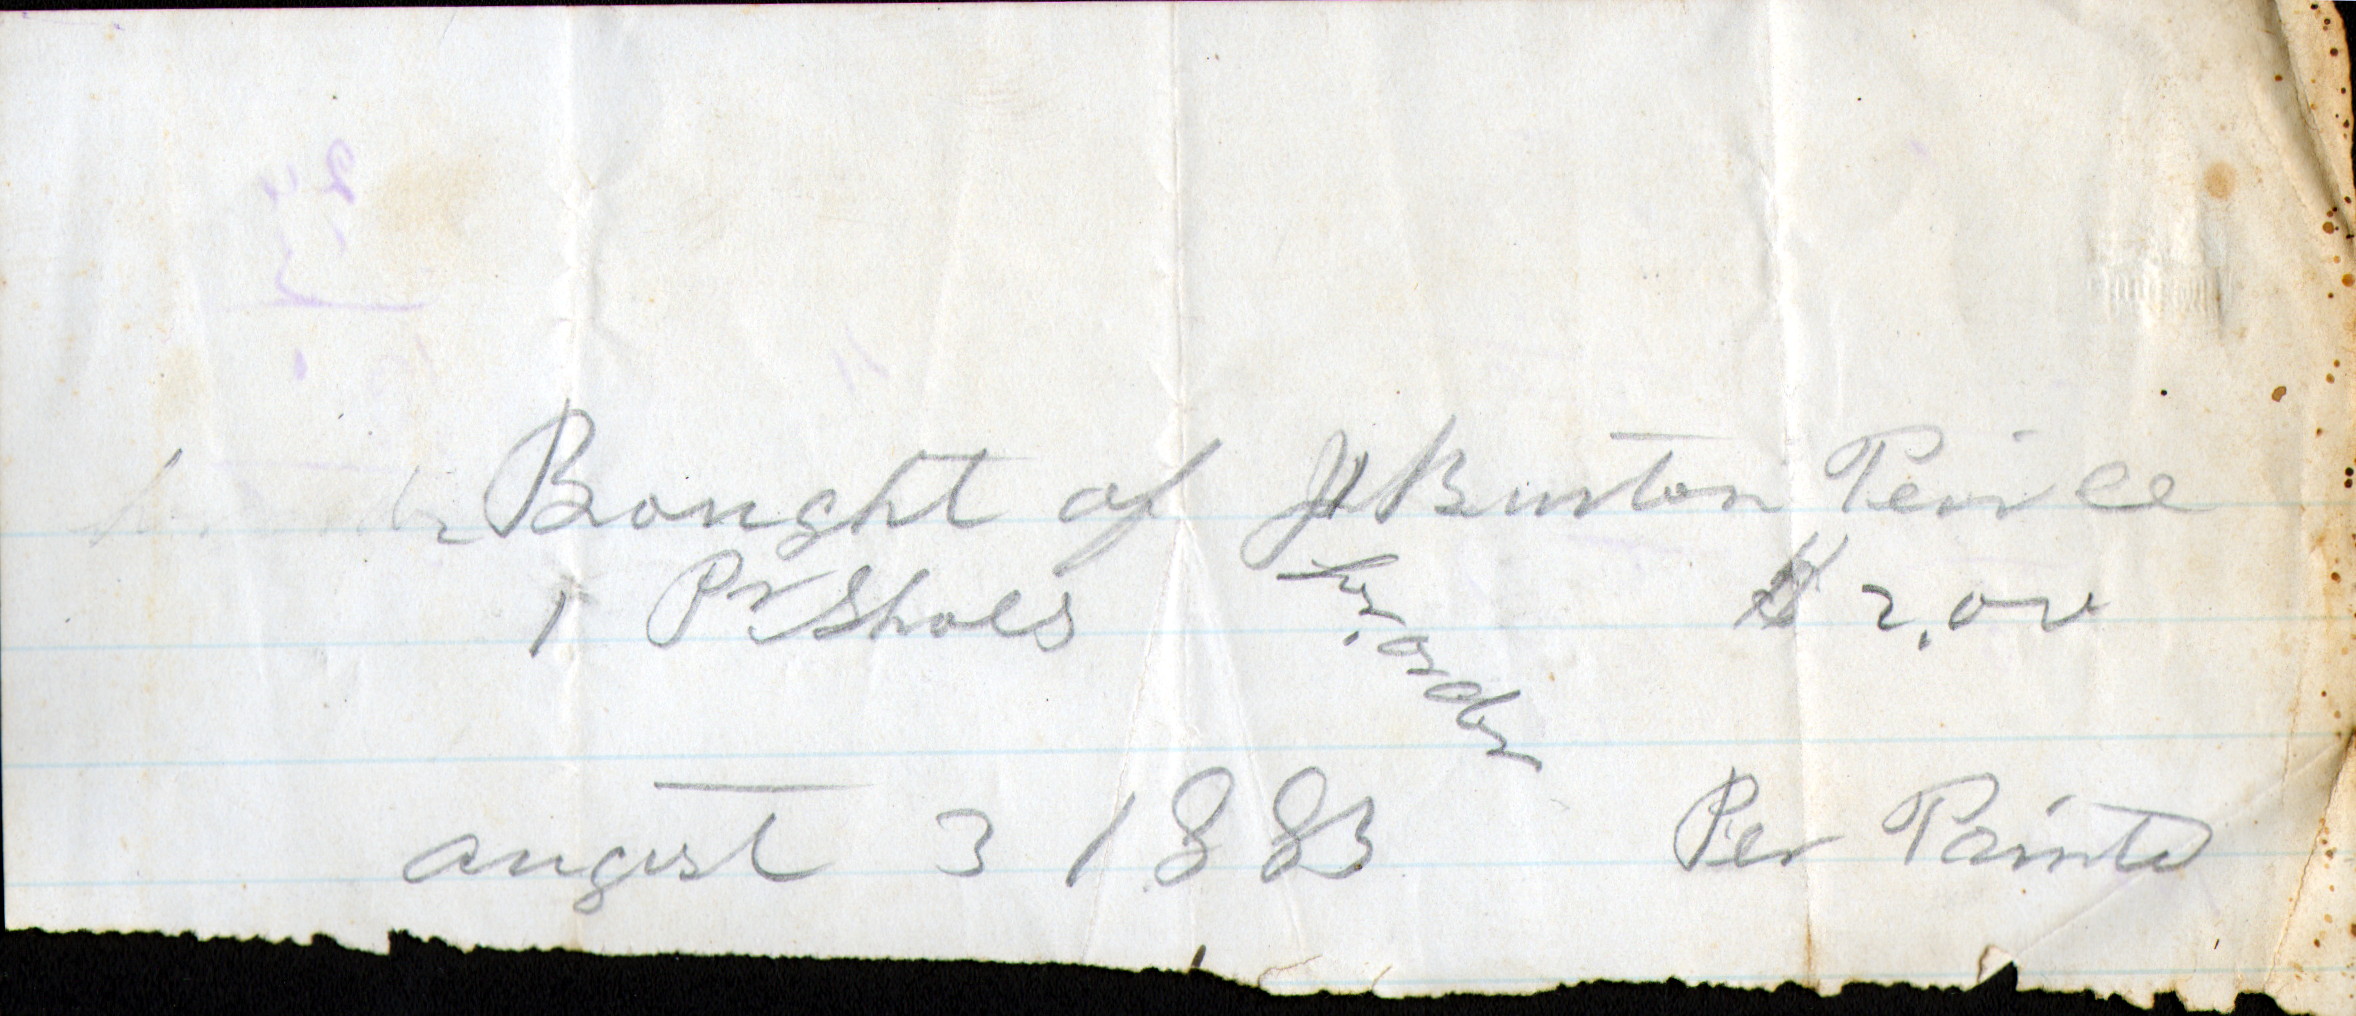 Bought of J Burton Peirce
1 Pr Shoes by order $ 2.00
august 3 1883 Per Painte